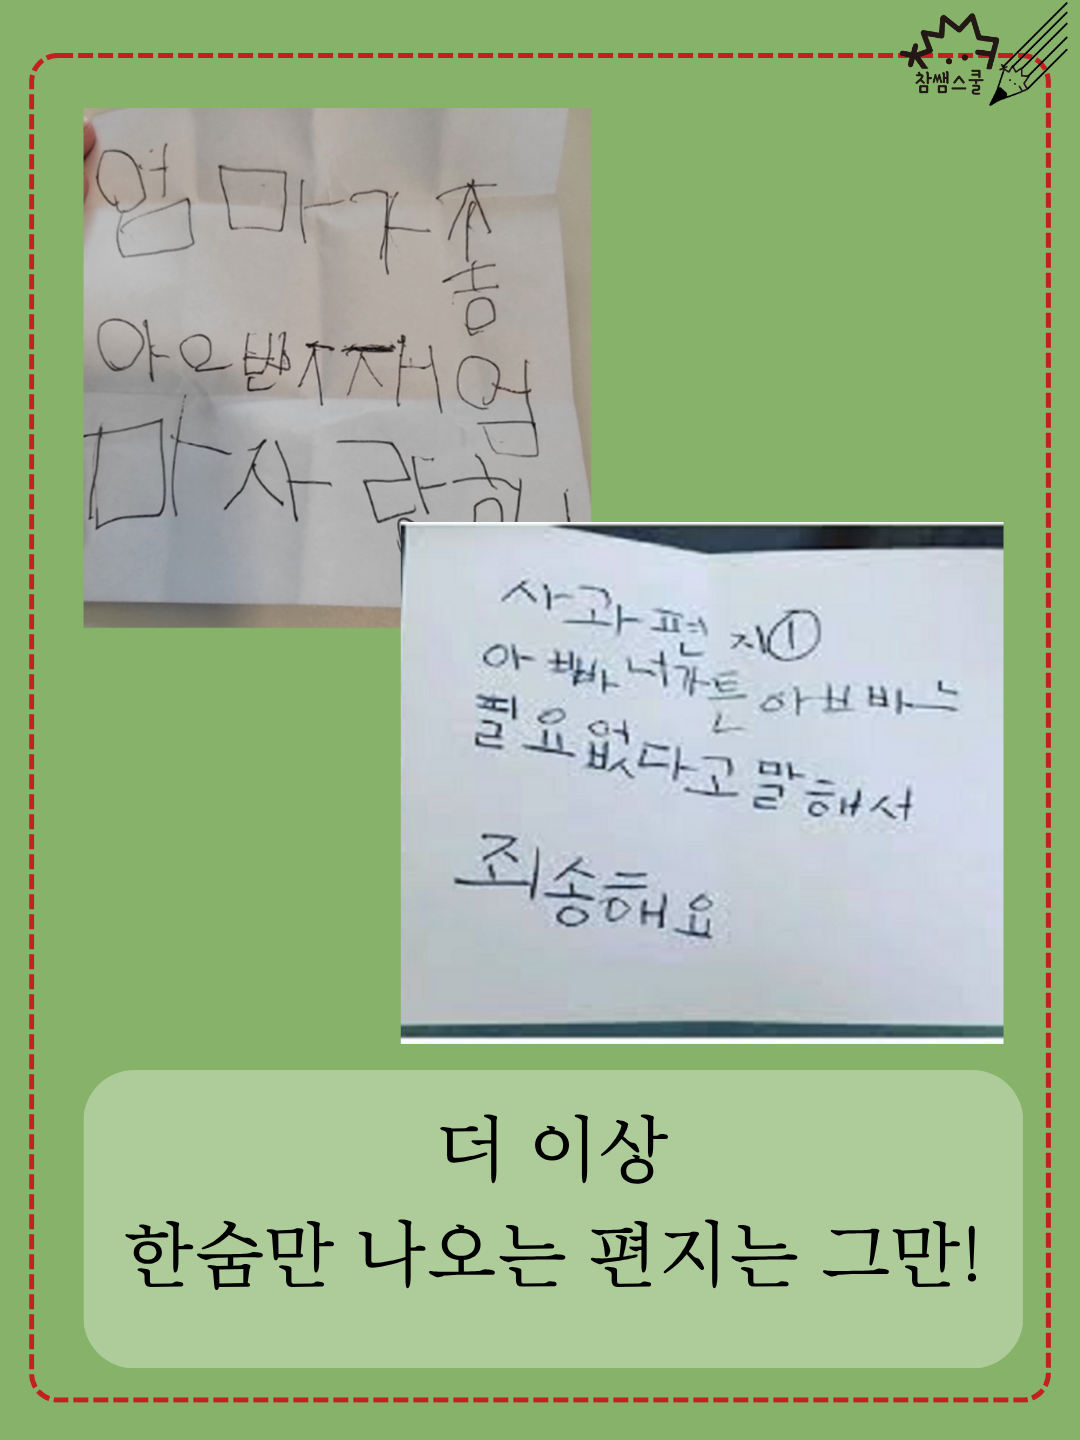 참쌤스쿨
엄마가 좋
아 오 번 째 엄
마 사랑해
사과편지①
아빠 너가튼 아빠는
필요없다고 말해서
죄송해요
더 이상
한숨만 나오는 편지는 그만!